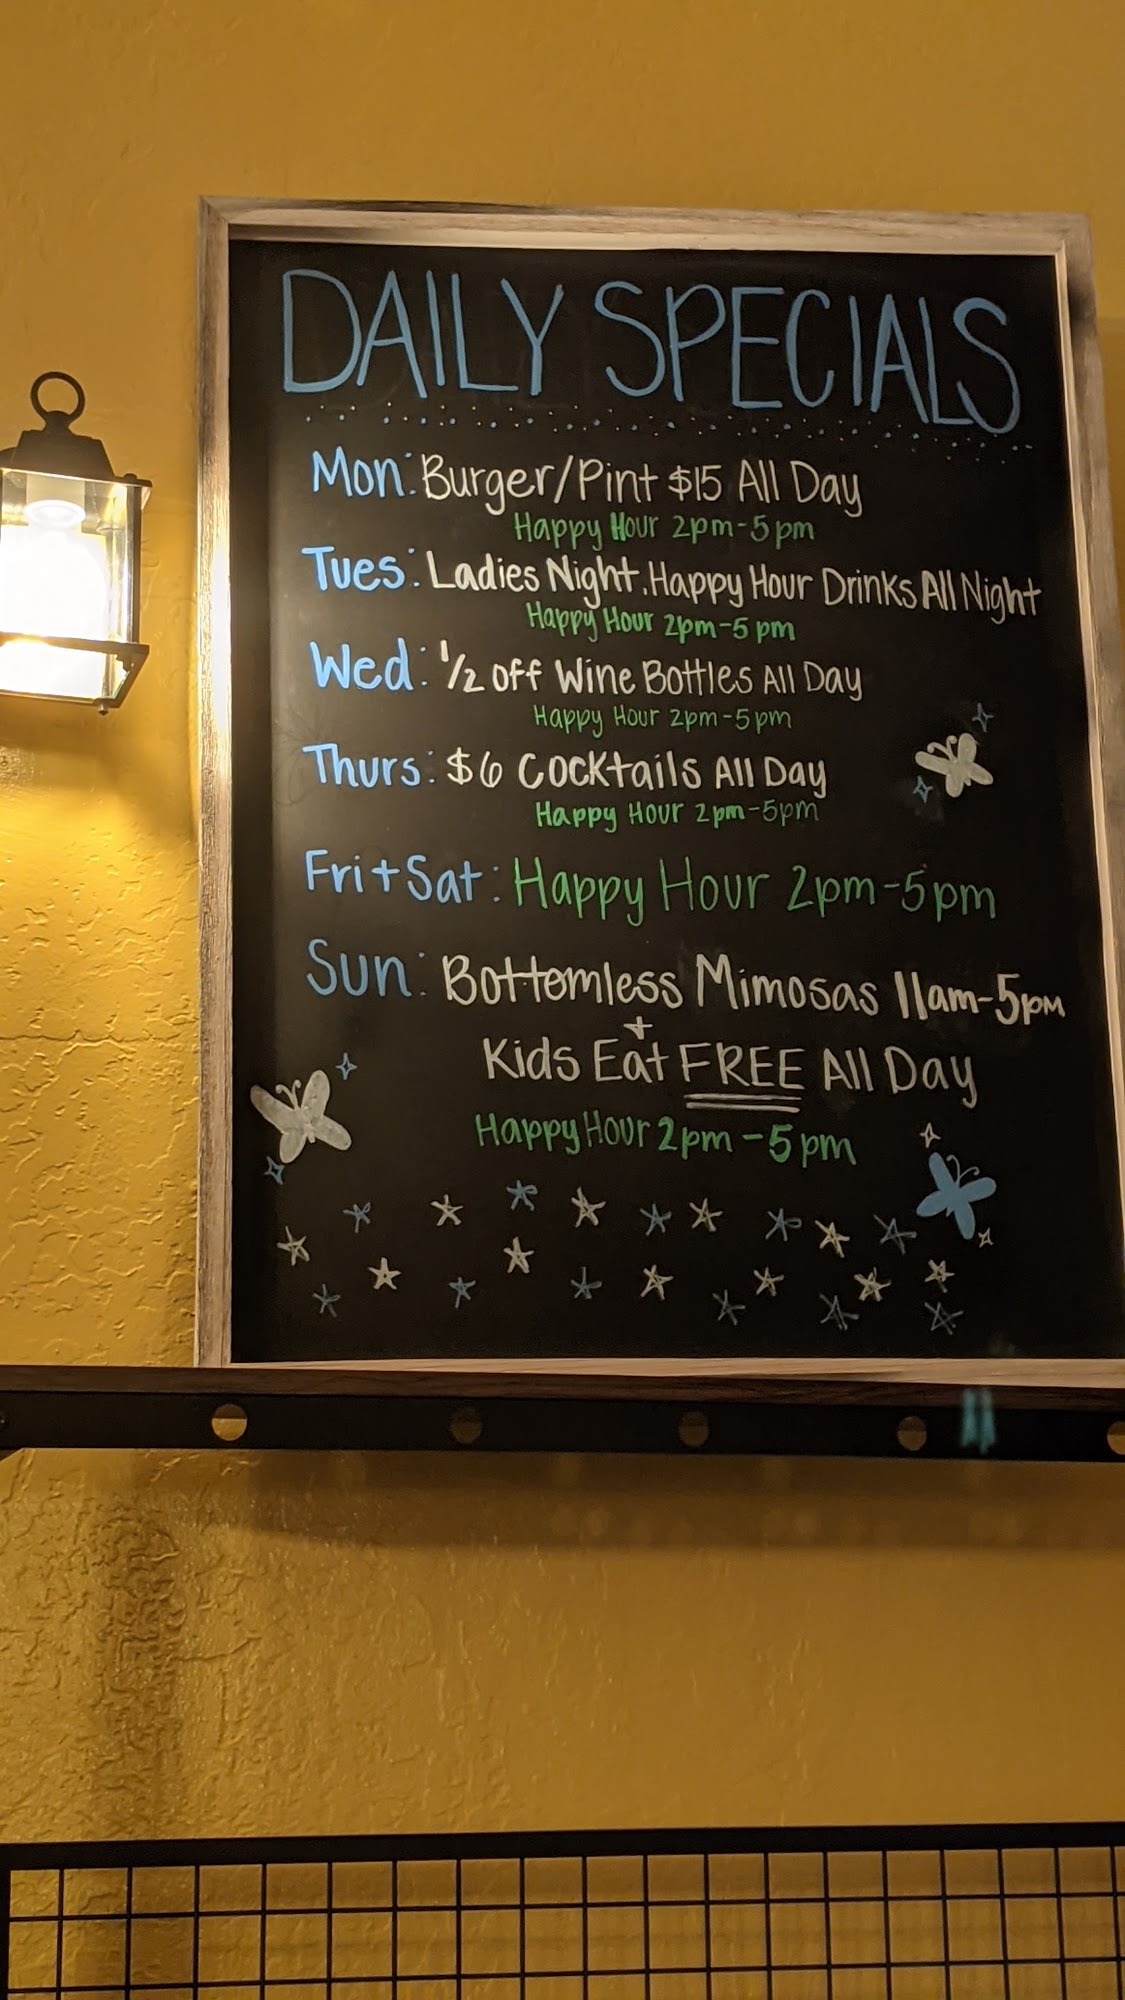 DAILY SPECIALS
Mon: Burger/Pint $15 All Day
Happy Hour 2pm-5pm
Tues: Ladies Night. Happy Hour Drinks All Night
Happy Hour 2pm-5pm
Wed: 1/2 off Wine Bottles All Day
Happy Hour 2pm-5pm
Thurs: $6 Cocktails All Day
Happy Hour 2pm-5pm
Fri+Sat: Happy Hour 2pm-5pm
Sun: Bottomless Mimosas 11am-5pm
+
Kids Eat FREE All Day
Happy Hour 2pm-5pm